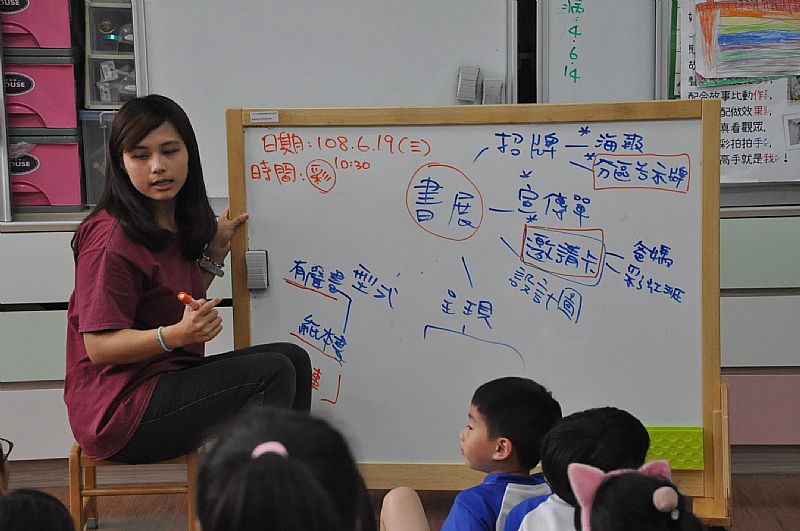 病
4
6
14
日期:108.6.19(三)
時間:彩 10:30
招牌
*海報
*分區告示牌
書展
*宣傳單
*邀請卡
爸媽
彩虹班
設計圖
呈現
型式
有聲書
紙本書
配合故事比動作
配做效果
真看觀眾
彩拍拍手
高手就是我
HOUSE
HOUSE